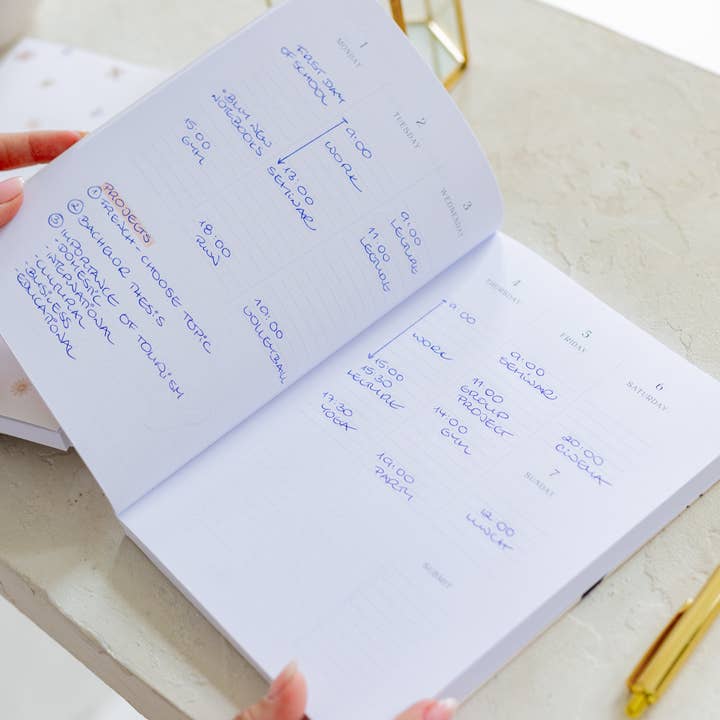 1
MONDAY
FIRST DAY
OF SCHOOL
• BUY NEW
NOTEBOOKS
15:00
GYM
2
TUESDAY
9:00
WORK
13:00
SEMINAR
18:00
RUN
3
WEDNESDAY
9:00
LECTURE
11:00
LECTURE
VOLLEYBALL
PROJECTS
① FRENCH - CHOOSE TOPIC
② BACHELOR THESIS
③ IMPORTANCE OF TOURISM
· DOMESTIC
· INTERNATIONAL
· CULTURAL
· BUSINESS
· EDUCATIONAL
4
THURSDAY
9:00
WORK
15:00
15:30
LECTURE
17:30
YOGA
5
FRIDAY
9:00
SEMINAR
11:00
GROUP
PROJECT
14:00
GYM
19:00
PARTY
6
SATURDAY
20:00
CINEMA
7
SUNDAY
12:00
LUNCH